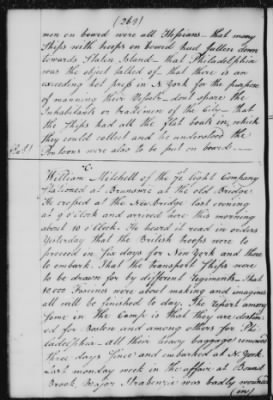 (269)
men on board were all Hessians - that many
Ships with troops on board had fallen down
towards Staten Island - that Philadelphia
was the object talked of - that there is an
exceeding hot press in N. York for the purpose
of manning their - don't spare the
Inhabitants or Tradesmen of the City - that
the Ships had all the flat boats in, which
they could collect and he understood the
Pontoons were also to be put on board
William Mitchell of the Light Company
stationed at Brunswic at the old Bridge
He crossed at the New bridge last evening
at 9 o'Clock and arrived here this morning
about 10 o'Clock. He heard it read in orders
Yesterday that the British troops were to
proceed in five days for New York and there
to embark. That the Transport Ships were
to be drawn for by different Regiments. That
10,000 Facines were about making and imagines
all will be finished to day. The report among
some in the Camp is that they are destin-
ed for Boston and among others for Phi-
ladelphia - all their heavy baggage removed
three days since and embarked at N. York.
Last monday week in the affair at Bound
Brook, Major was badly wounded
(in)